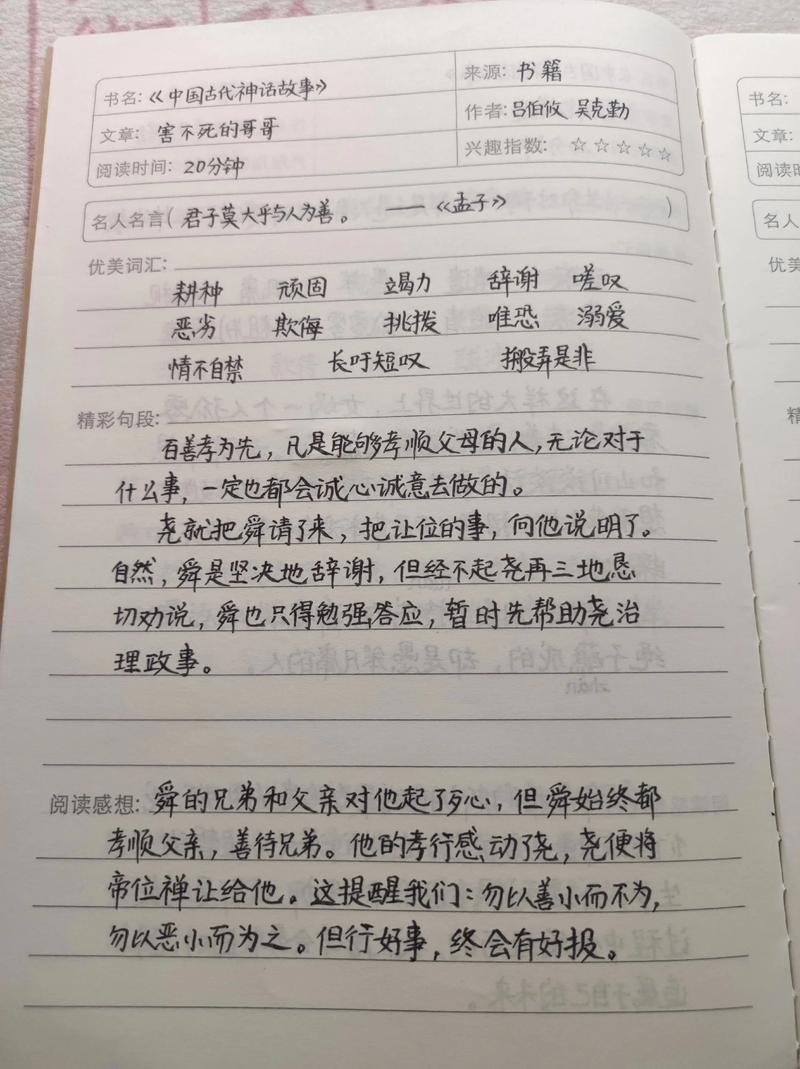 书名:《中国古代神话故事》
来源: 书籍
文章: 害不死的哥哥
作者: 吕伯攸 吴克勤
阅读时间: 20分钟
兴趣指数: ☆☆☆☆☆
名人名言( 君子莫大乎与人为善。 ——《孟子》 )
优美词汇:
耕种 顽固 竭力 辞谢 嗟叹
恶劣 欺侮 挑拨 唯恐 溺爱
情不自禁 长吁短叹 搬弄是非
精彩句段:
百善孝为先，凡是能够孝顺父母的人，无论对于
什么事，一定也都会诚心诚意去做的。
尧就把舜请了来，把让位的事，向他说明了。
自然，舜是坚决地辞谢，但经不起尧再三地恳
切劝说，舜也只得勉强答应，暂时先帮助尧治
理政事。
阅读感想: 舜的兄弟和父亲对他起了歹心，但舜始终都
孝顺父亲，善待兄弟。他的孝行感动了尧，尧便将
帝位禅让给他。这提醒我们：勿以善小而不为，
勿以恶小而为之。但行好事，终会有好报。
书名:
文章:
阅读
名人
优美